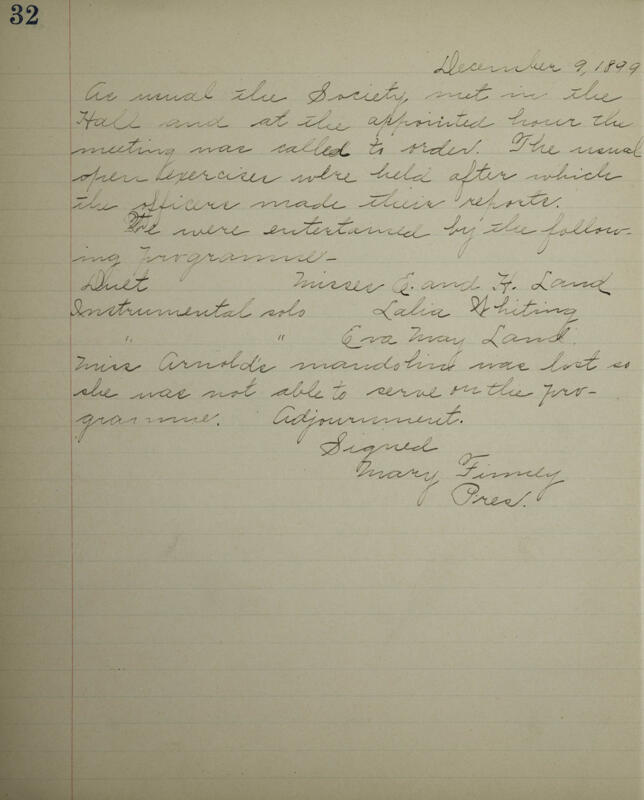 32
December 9, 1899
As usual the Society met in the
Hall and at the appointed hour the
meeting was called to order. The usual
open exercises were held after which
the officers made their reports.
We were entertained by the follow-
ing programme-
Duet Misses E. and H. Land
Instrumental solo Lalia Whiting
" " Eva May Land.
Miss Arnold's mandoline was lost so
she was not able to serve on the pro-
gramme. Adjournment.
Signed
Mary Finney
Pres.